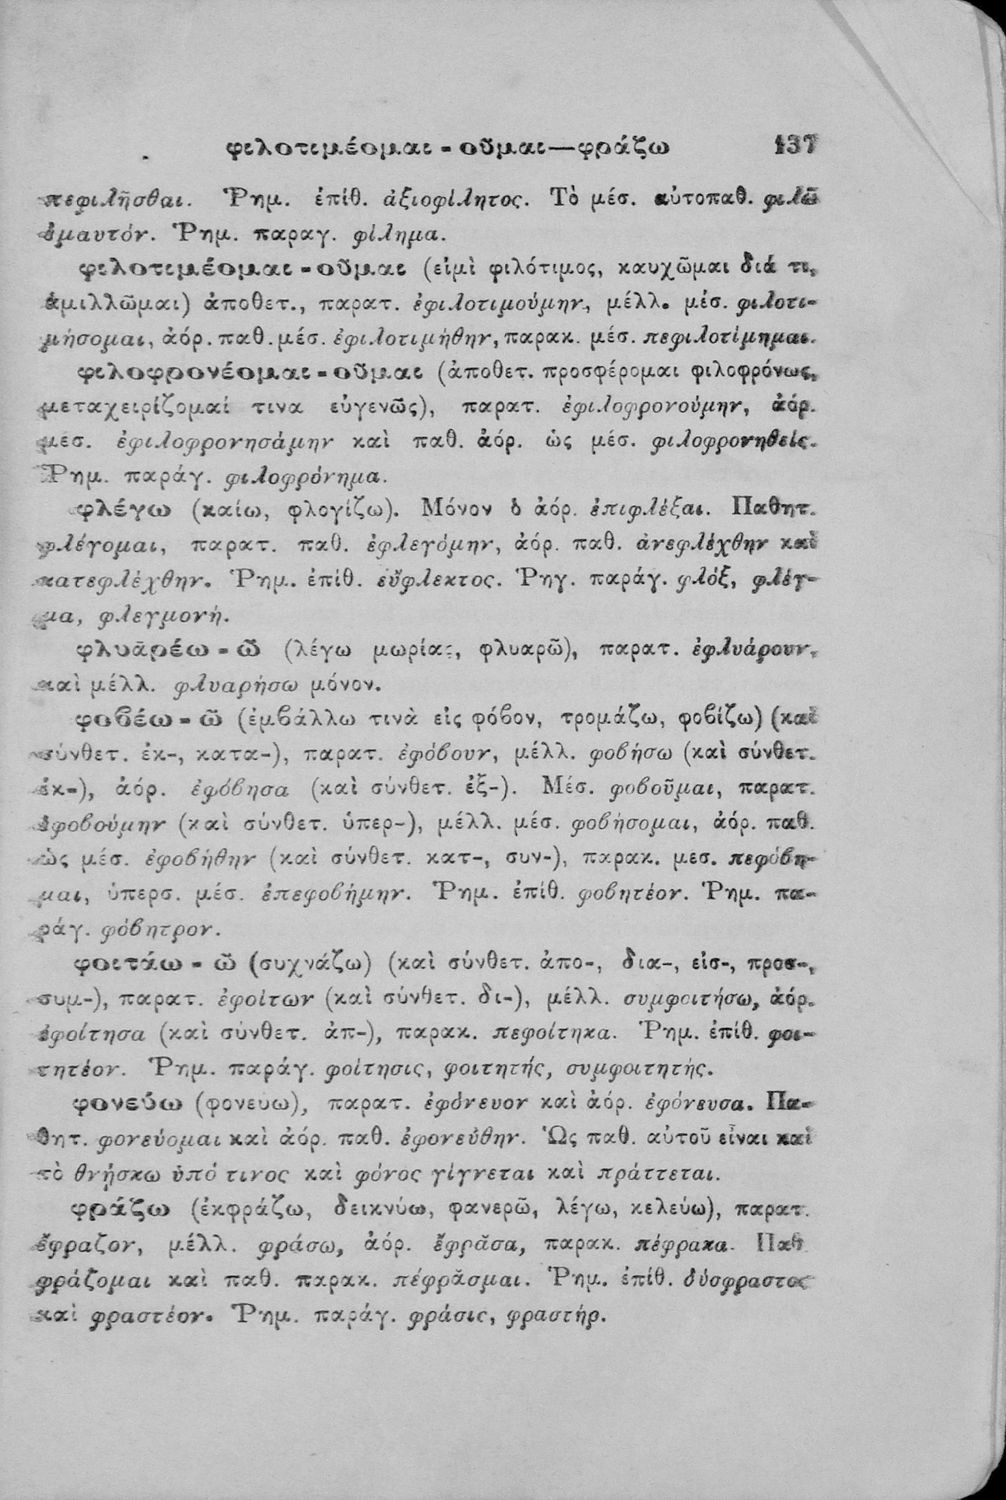 φιλοτιμέομαι - οῦμαι—φράζω 137
πεφιλῆσθαι. Ῥημ. ἐπίθ. ἀξιοφίλητος. Τὸ μέσ. αὐτοπαθ. φιλῶ
ἐμαυτόν. Ῥημ. παραγ. φίλημα.
φιλοτιμέομαι - οῦμαι (εἰμὶ φιλότιμος, καυχῶμαι διά τι,
ἁμιλλῶμαι) ἀποθετ., παρατ. ἐφιλοτιμούμην, μέλλ. μέσ. φιλοτι-
μήσομαι, ἀόρ. παθ. μέσ. ἐφιλοτιμήθην, παρακ. μέσ. πεφιλοτίμημαι.
φιλοφρονέομαι - οῦμαι (ἀποθετ. προσφέρομαι φιλοφρόνως,
μεταχειρίζομαί τινα εὐγενῶς), παρατ. ἐφιλοφρονούμην, ἀόρ.
μεσ. ἐφιλοφρονησάμην καὶ παθ. ἀόρ. ὡς μέσ. φιλοφρονηθείς.
Ῥημ. παράγ. φιλοφρόνημα.
φλέγω (καίω, φλογίζω). Μόνον ὁ ἀόρ. ἐπιφλέξαι. Παθητ.
φλέγομαι, παρατ. παθ. ἐφλεγόμην, ἀόρ. παθ. ἀνεφλέχθην καὶ
κατεφλέχθην. Ῥημ. ἐπίθ. εὔφλεκτος. Ῥηγ. παράγ. φλόξ, φλέγ-
μα, φλεγμονή.
φλυᾱρέω - ῶ (λέγω μωρίας, φλυαρῶ), παρατ. ἐφλυάρουν,
καὶ μέλλ. φλυαρήσω μόνον.
φοβέω - ῶ (ἐμβάλλω τινὰ εἰς φόβον, τρομάζω, φοβίζω) (καὶ
σύνθετ. ἐκ-, κατα-), παρατ. ἐφόβουν, μέλλ. φοβήσω (καὶ σύνθετ.
ἐκ-), ἀόρ. ἐφόβησα (καὶ σύνθετ. ἐξ-). Μέσ. φοβοῦμαι, παρατ.
ἐφοβούμην (καὶ σύνθετ. ὑπερ-), μέλλ. μέσ. φοβήσομαι, ἀόρ. παθ.
ὡς μέσ. ἐφοβήθην (καὶ σύνθετ. κατ-, συν-), παρακ. μεσ. πεφόβη-
μαι, ὑπερσ. μέσ. ἐπεφοβήμην. Ῥημ. ἐπίθ. φοβητέον. Ῥημ. πα-
ράγ. φόβητρον.
φοιτάω - ῶ (συχνάζω) (καὶ σύνθετ. ἀπο-, δια-, εἰσ-, προσ-,
συμ-), παρατ. ἐφοίτων (καὶ σύνθετ. δι-), μέλλ. συμφοιτήσω, ἀόρ.
ἐφοίτησα (καὶ σύνθετ. ἀπ-), παρακ. πεφοίτηκα. Ῥημ. ἐπίθ. φοι-
τητέον. Ῥημ. παράγ. φοίτησις, φοιτητής, συμφοιτητής.
φονεύω (φονευω), παρατ. ἐφόνευον καὶ ἀόρ. ἐφόνευσα. Πα-
θητ. φονεύομαι καὶ ἀόρ. παθ. ἐφονεύθην. Ὡς παθ. αὐτοῦ εἶναι καὶ
τὸ θνήσκω ὑπό τινος καὶ φόνος γίγνεται καὶ πράττεται.
φράζω (ἐκφράζω, δεικνύω, φανερῶ, λέγω, κελεύω), παρατ.
ἔφραζον, μέλλ. φράσω, ἀόρ. ἔφρᾰσα, παρακ. πέφρακα. Παθ
φράζομαι καὶ παθ. παρακ. πέφρᾰσμαι. Ῥημ. ἐπίθ. δύσφραστος
καὶ φραστέον. Ῥημ. παράγ. φράσις, φραστήρ.